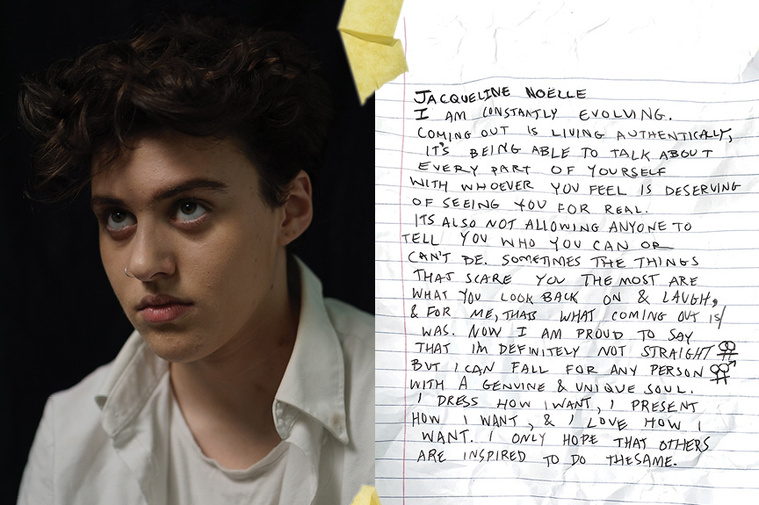 JACQUELINE NOËLLE
I AM CONSTANTLY EVOLVING.
COMING OUT IS LIVING AUTHENTICALLY,
IT'S BEING ABLE TO TALK ABOUT
EVERY PART OF YOURSELF
WITH WHOEVER YOU FEEL IS DESERVING
OF SEEING YOU FOR REAL.
ITS ALSO NOT ALLOWING ANYONE TO
TELL YOU WHO YOU CAN OR
CAN'T BE. SOMETIMES THE THINGS
THAT SCARE YOU THE MOST ARE
WHAT YOU LOOK BACK ON & LAUGH,
& FOR ME, THATS WHAT COMING OUT IS/
WAS. NOW I AM PROUD TO SAY
THAT IM DEFINITELY NOT STRAIGHT ⚢
BUT I CAN FALL FOR ANY PERSON ⚤
WITH A GENUINE & UNIQUE SOUL.
I DRESS HOW I WANT, I PRESENT
HOW I WANT, & I LOVE HOW I
WANT. I ONLY HOPE THAT OTHERS
ARE INSPIRED TO DO THE SAME.